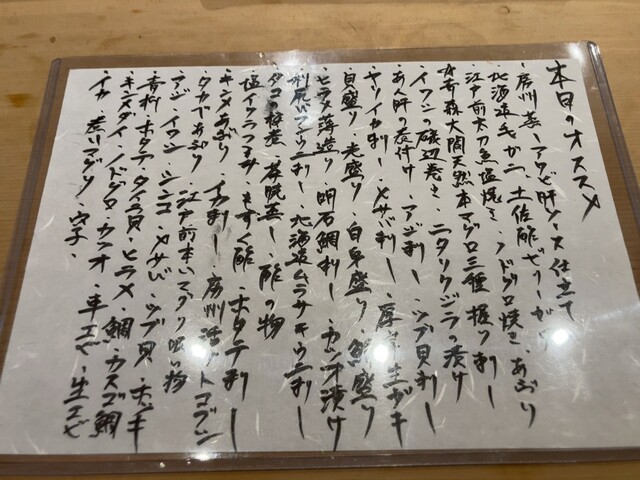 本日のオススメ
・房州蒸しアワビ肝ソース仕立て
・北海道毛がに土佐酢ゼリーがけ
・江戸前太刀魚塩焼き・ノドグロ焼き・あぶり
・青森大間天然本マグロ三種 握り 刺し
・イワシの磯辺巻き・ニタリクジラの漬け
・あん肝の煮付け・アジ刺し・ツブ貝刺し
・ヤリイカ刺し・〆サバ刺し・厚岸生ガキ
・貝盛り・光盛り・白身盛り・鮪盛り
・ヒラメ薄造り・明石鯛刺し・カツオ漬け
・利尻バフンウニ刺し・北海道ムラサキウニ刺し
・タコの桜煮・茶碗蒸し・酢の物
・塩イクラつまみ・もずく酢・ホタテ刺し
・キンメあぶり・イカ刺し・房州活ナガトコブシ
・タカベあぶり・江戸前本いマグリ吸い物
・アジ・イワシ・シンコ・〆サバ・ツブ貝・ホッキ
・青柳・ホタテ・タイラ貝・ヒラメ・鯛・カスゴ鯛
・キンメダイ・ノドグロ・カツオ・車エビ・生エビ
・イカ・煮ハマグリ・穴子・